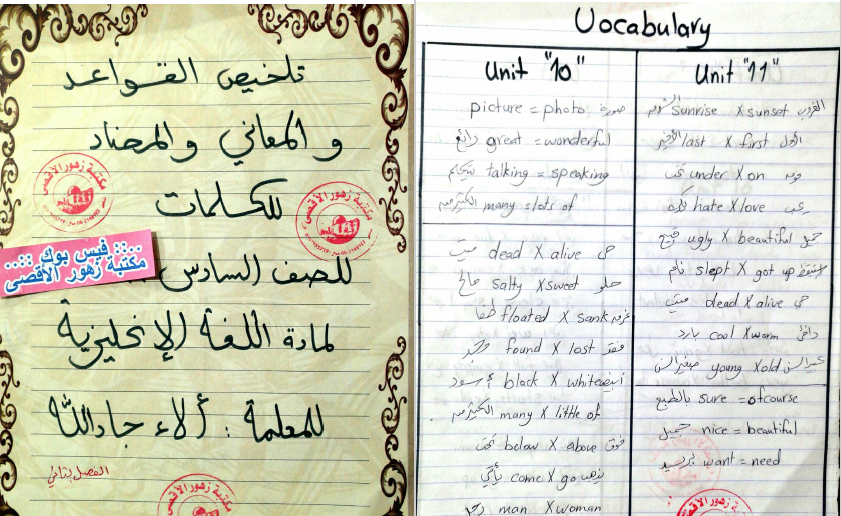 تلخيص القواعد
و المعاني والمضاد
للكلمات
للصف السادس
لمادة اللغة الإنجليزية
للمعلمة : ألاء جادالله
الفصل الثاني
مكتبة زهور الاقصى
مكتبة زهور الاقصى
::.. فيس بوك ..::
مكتبة زهور الأقصى
Vocabulary
Unit "10"
picture = photo صورة
رائع great = wonderful
يتكلم talking = speaking
الكثير من many = lots of
ميت dead X alive حي
مالح salty X sweet حلو
طفا floated X sank غرق
وجد found X lost فقد
أسود black X white أبيض
الكثير من many X little of
تحت below X above فوق
يأتي come X go يذهب
رجل man X woman
Unit "11"
الشروق sunrise X sunset الغروب
الأخير last X first الأول
تحت under X on فوق
كره hate X love حب
قبيح ugly X beautiful جميل
نام slept X got up استيقظ
ميت dead X alive حي
بارد cool X warm دافئ
صغير السن young X old كبير السن
بالطبع sure = of course
جميل nice = beautiful
يريد want = need